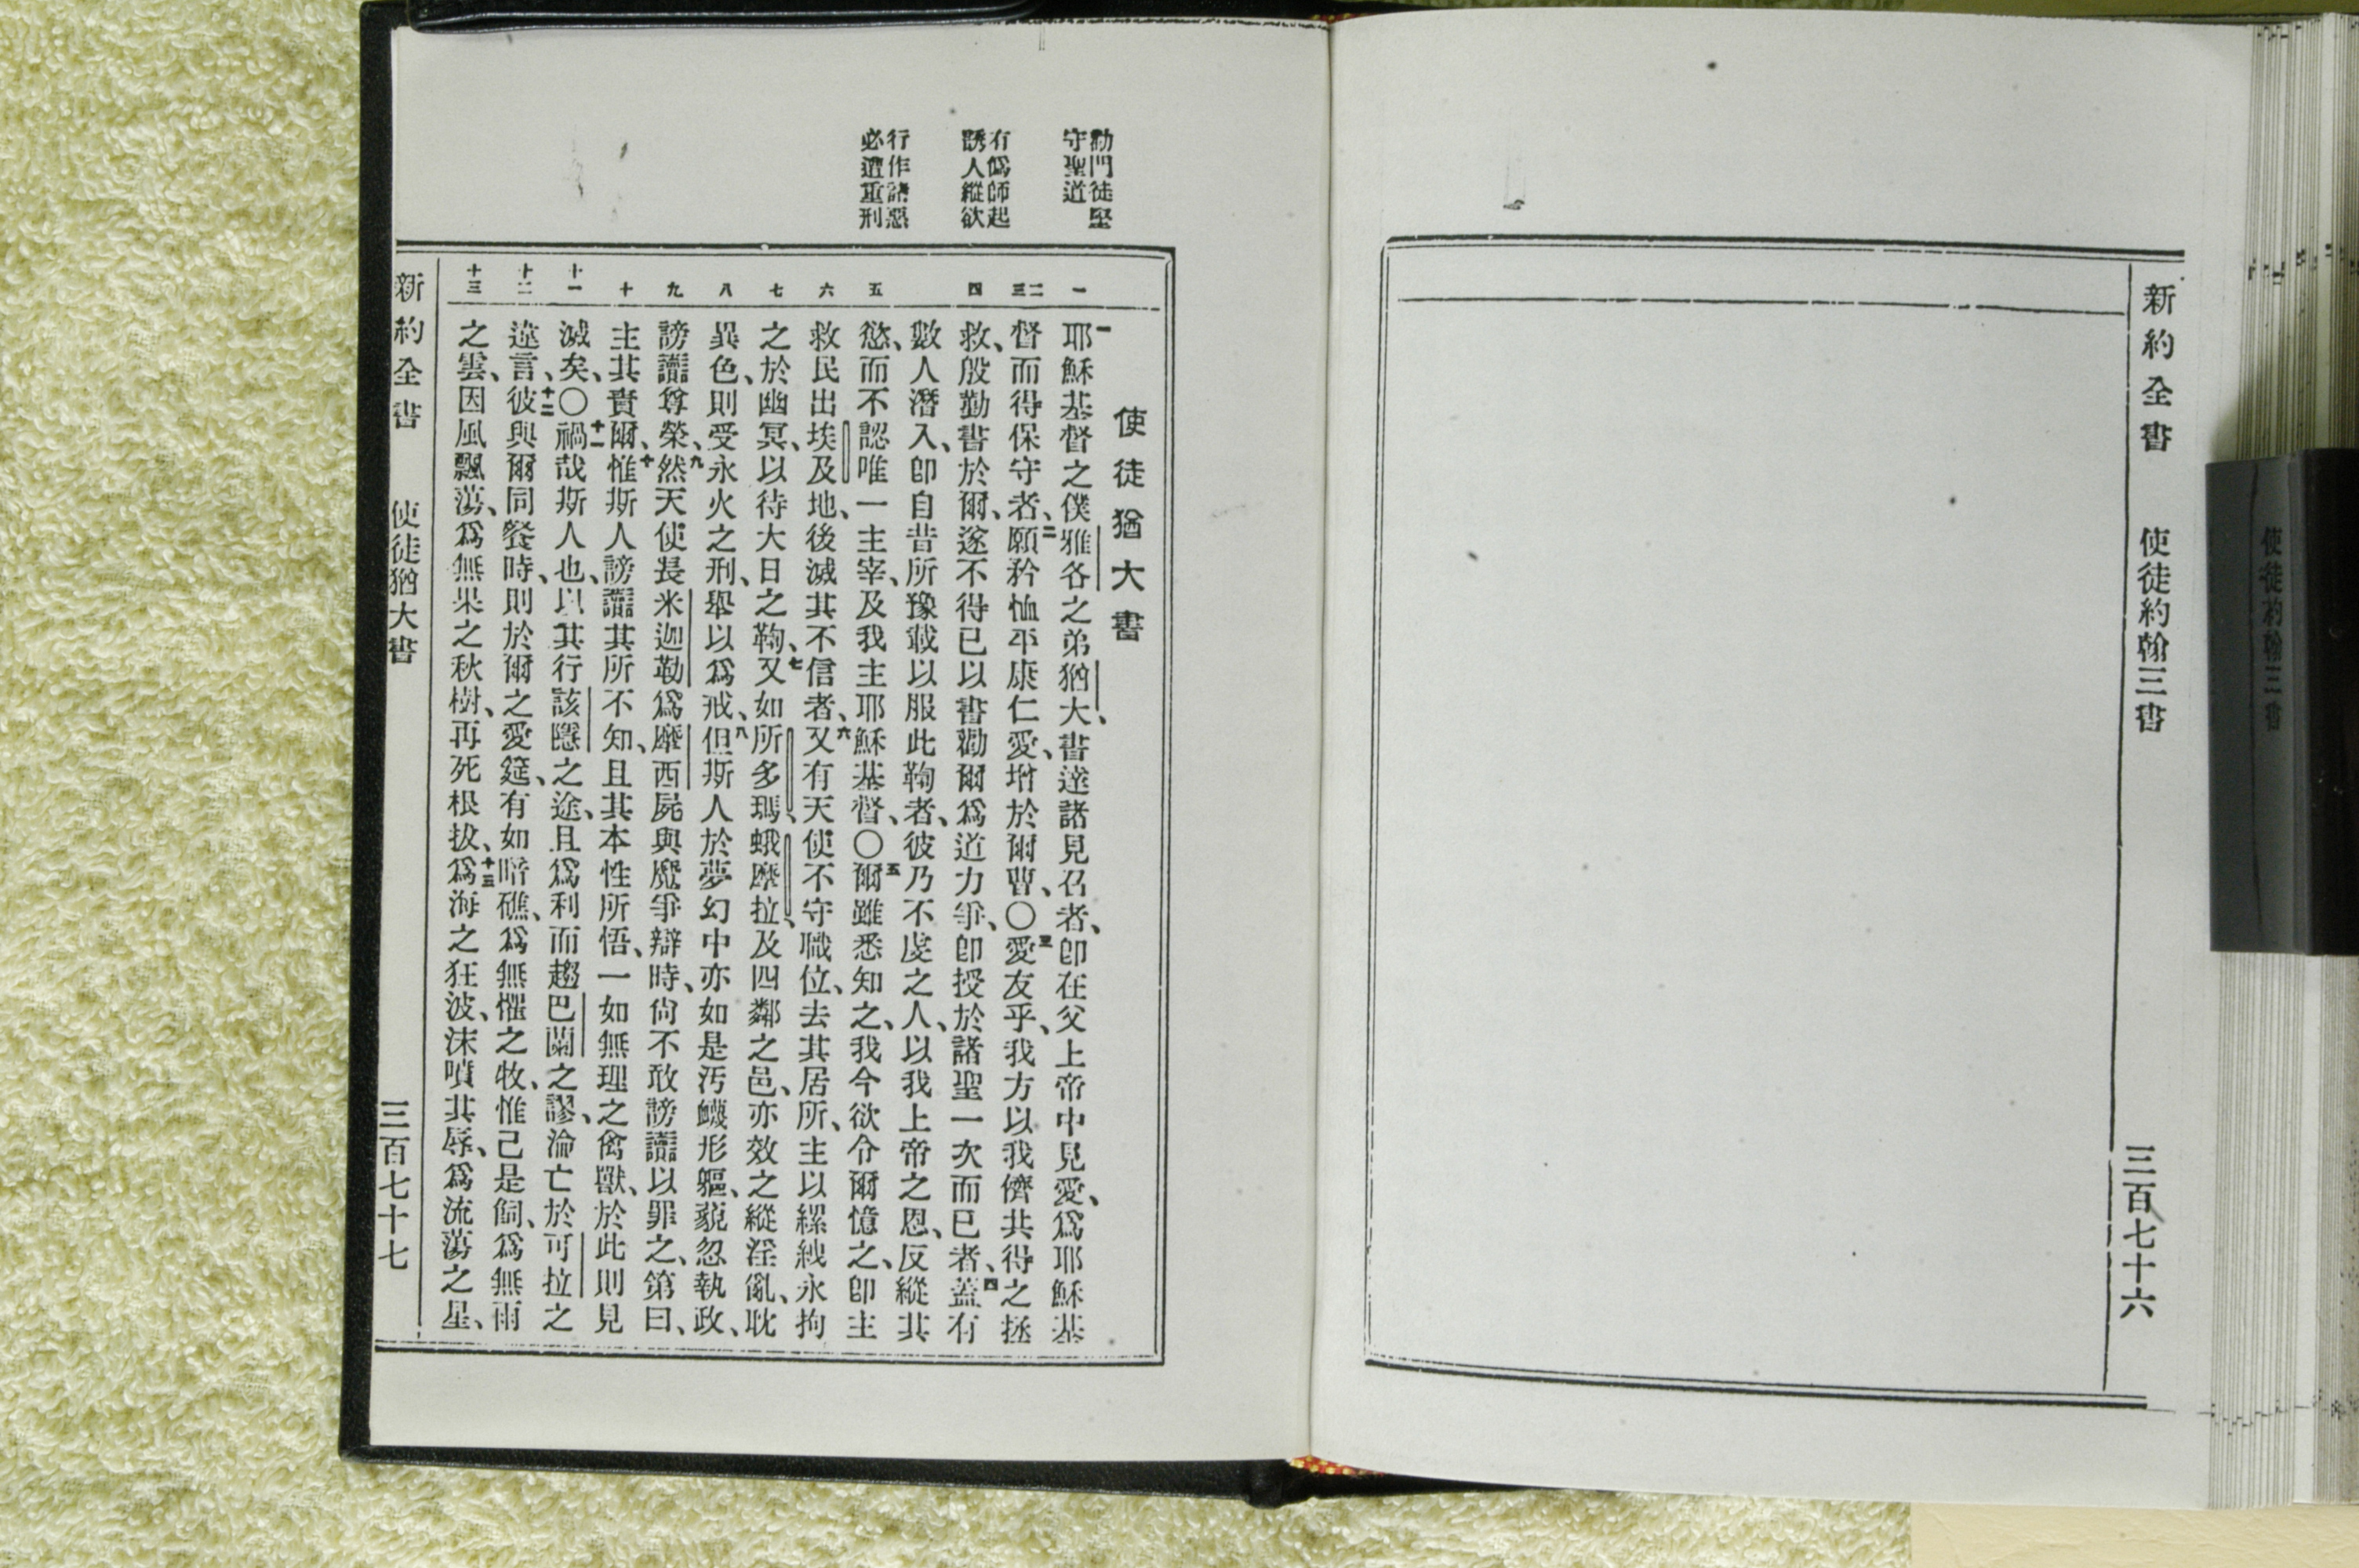 新約全書 使徒約翰三書 三百七十六
勸門徒堅
守聖道
有僞師起
誘人縱欲
行作諸惡
必遭重刑
使徒猶大書
一
二
三
四
五
六
七
八
九
十
十一
十二
十三
一耶穌基督之僕雅各之弟猶大、書達諸見召者、卽在父上帝中見愛、爲耶穌基
督而得保守者、二願矜恤平康仁愛、增於爾曹、〇三愛友乎、我方以我儕共得之拯
救、殷勤書於爾、遂不得已以書勸爾爲道力爭、卽授於諸聖一次而已者、四蓋有
數人潛入、卽自昔所豫載以服此鞫者、彼乃不虔之人、以我上帝之恩、反縱其
慾、而不認唯一主宰、及我主耶穌基督、〇五爾雖悉知之、我今欲令爾憶之、卽主
救民出埃及地、後滅其不信者、六又有天使不守職位、去其居所、主以縲絏永拘
之於幽冥、以待大日之鞫、七又如所多瑪、蛾摩拉、及四鄰之邑、亦效之縱淫亂、耽
異色、則受永火之刑、舉以爲戒、八但斯人於夢幻中亦如是汚衊形軀、藐忽執政、
謗讟尊榮、九然天使長米迦勒爲摩西屍與魔爭辯時、尙不敢謗讟以罪之、第曰、
主其責爾、十惟斯人謗讟其所不知、且其本性所悟、一如無理之禽獸、於此則見
滅矣、〇十一禍哉斯人也、以其行該隱之途、且爲利而趨巴蘭之謬、淪亡於可拉之
違言、十二彼與爾同餐時、則於爾之愛筵、有如暗礁、爲無懼之牧、惟己是飼、爲無雨
之雲、因風飄蕩、爲無果之秋樹、再死根拔、十三爲海之狂波、沫噴其辱、爲流蕩之星、
新約全書 使徒猶大書 三百七十七